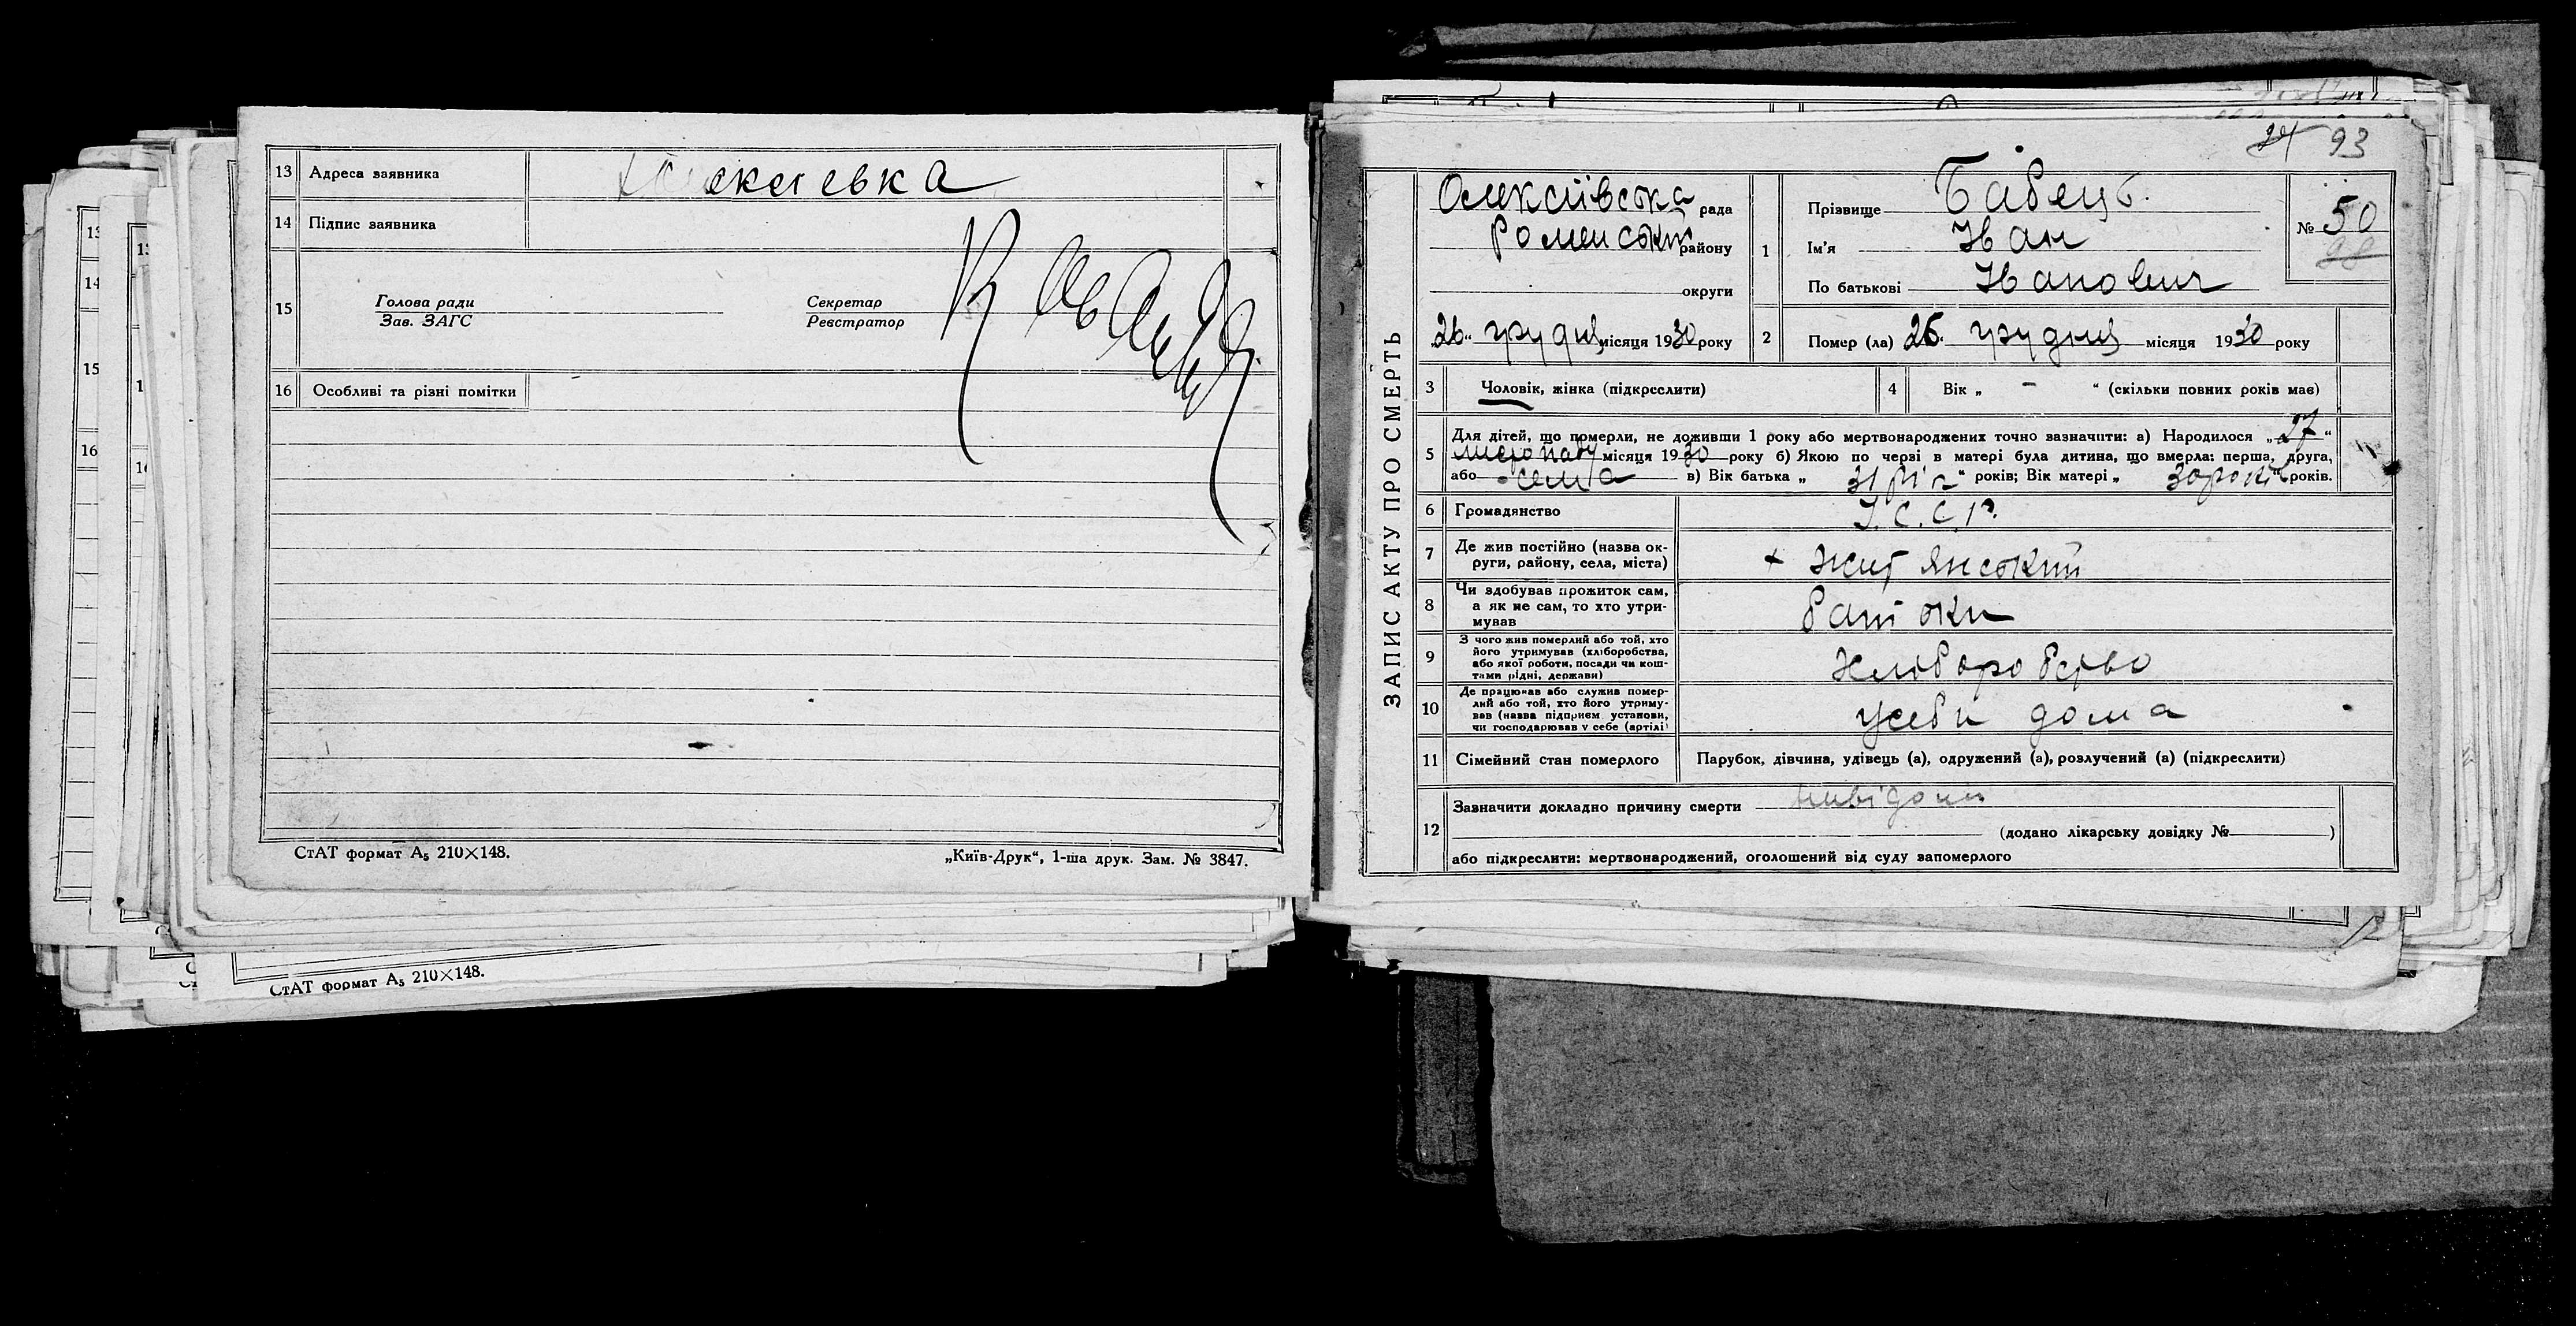 13 Адреса заявника
14 Підпис заявника
15 Голова ради
Зав. ЗАГС
Секретар
Реєстратор
16 Особливі та різні помітки
СтАТ формат А₅ 210×148.
„Київ-Друк“, 1-ша друк. Зам. № 3847.
СтАТ формат А₅ 210×148.
93
ЗАПИС АКТУ ПРО СМЕРТЬ
Олексіївська рада
Роменський району
округи
„26“ грудня місяця 1930 року
1 Прізвище Бабець
Ім'я Іван
По батькові Іванович
№ 50
2 Помер (ла) 26 грудня місяця 1930 року
3 Чоловік, жінка (підкреслити)
4 Вік „ — “ (скільки повних років має)
5 Для дітей, що померли, не доживши 1 року або мертвонароджених точно зазначити: а) Народилося „27“
листопаду місяця 1930 року б) Якою по черзі в матері була дитина, що вмерла: перша, друга,
або сема в) Вік батька „31 рік“ років; Вік матері „30 років років.
6 Громадянство У.С.С.Р.
7 Де жив постійно (назва округи, району, села, міста)
8 Чи здобував прожиток сам,
а як не сам, то хто утримував
батьки
9 З чого жив померлий або той, хто
його утримував (хліборобства,
або якої роботи, посади чи коштами рідні, держави)
хліборобство
10 Де працював або служив померлий або той, хто його утримував (назва підприєм установи,
чи господарював у себе (артілі)
усеби дома
11 Сімейний стан померлого Парубок, дівчина, удівець (а), одружений (а), розлучений (а) (підкреслити)
12 Зазначити докладно причину смерти
(додано лікарську довідку № )
або підкреслити: мертвонароджений, оголошений від суду запомерлого